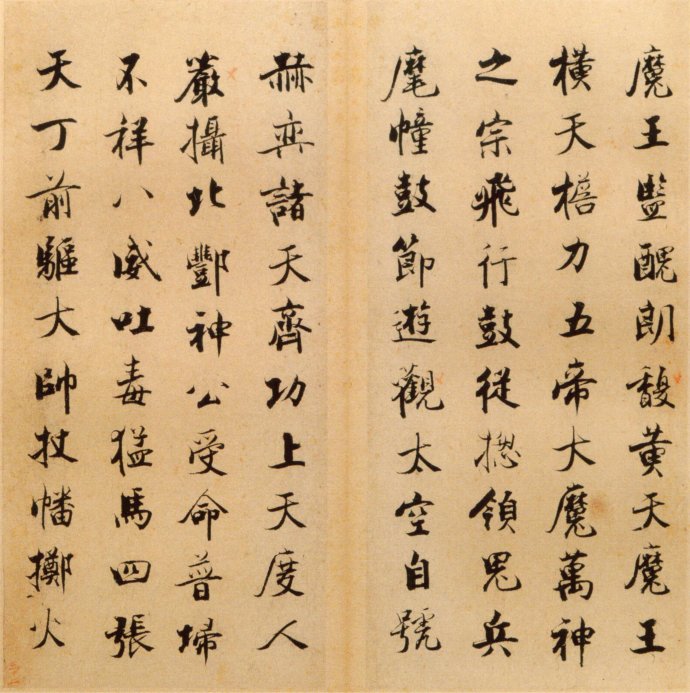 魔王監醜朗馥黃天魔王
橫天擔力五帝大魔萬神
之宗飛行鼓從揔領鬼兵
麾幢鼓節遊觀太空自號
赫弈諸天齊功上天度人
嚴攝北酆神公受命普埽
不祥八威吐毒猛馬四張
天丁前驅大帥杖幡擲火